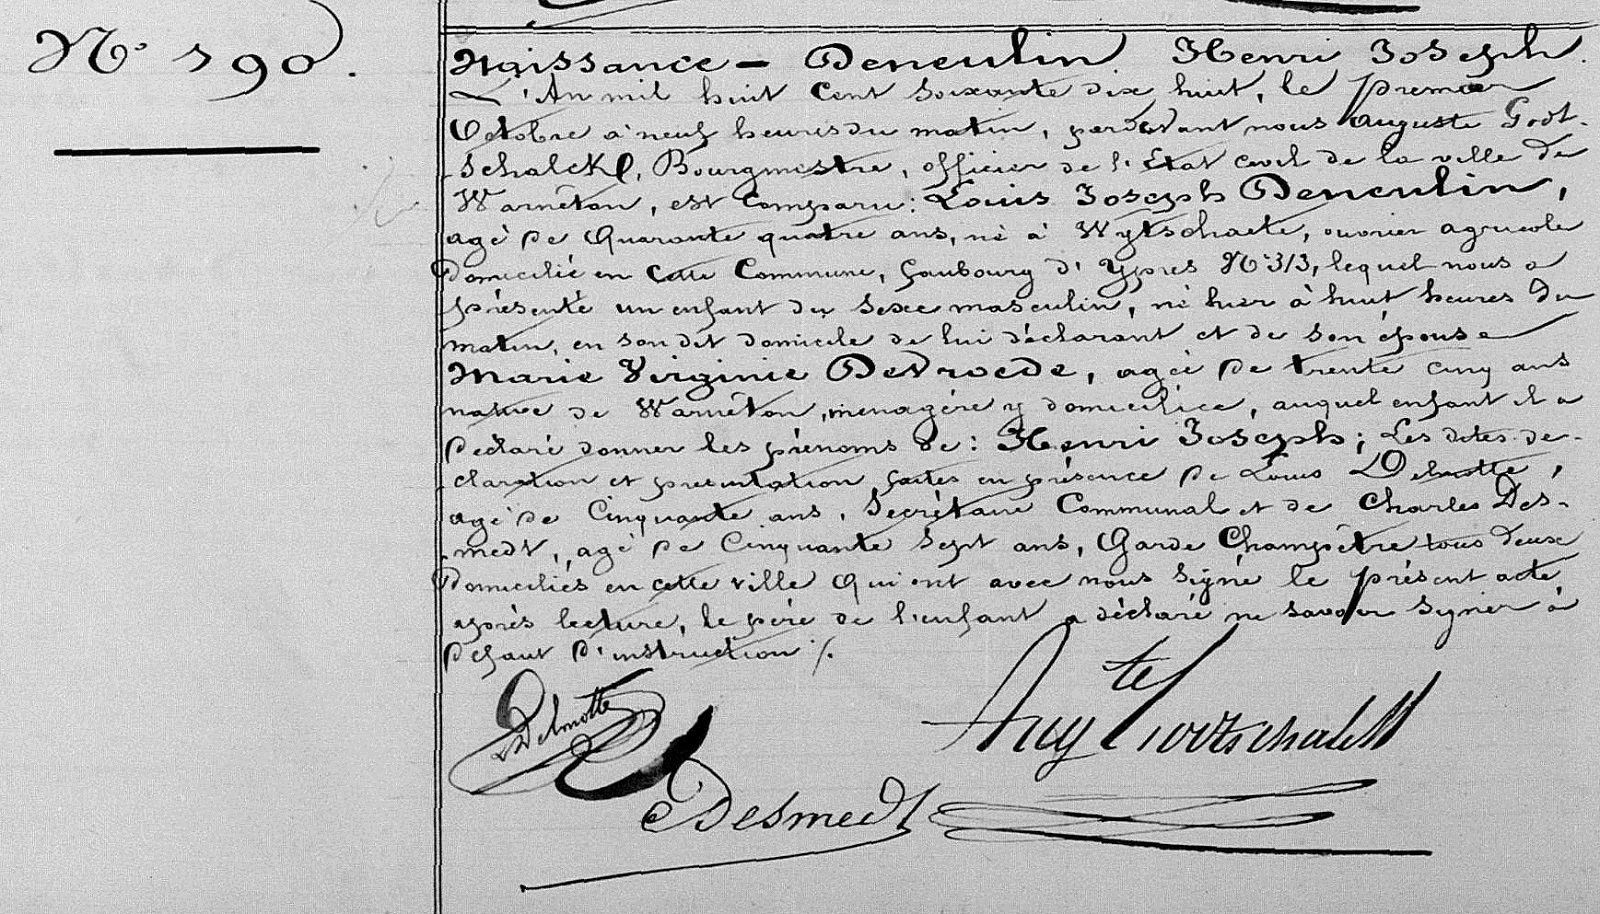 N° 190.
Naissance - Deneulin Henri Joseph.
L'An mil huit cent soixante dix huit, le premier
Octobre à neuf heures du matin, pardevant nous Auguste Godt-
schalck, Bourgmestre, officier de l'Etat civil de la ville de
Warnêton, est comparu: Louis Joseph Deneulin,
agé de Quarante quatre ans, né à Wytschaete, ouvrier agricole
domicilié en cette Commune, faubourg d'Ypres N° 313, lequel nous a
présenté un enfant du sexe masculin, né hier à huit heures du
matin, en son dit domicile de lui déclarant et de son épouse
Marie Virginie Devroede, agée de trente cinq ans
native de Warnêton, menagère y domiciliée, auquel enfant il a
déclaré donner les prénoms de: Henri Joseph; Les dites dé-
claration et presentation faites en présence de Louis Delmotte,
agé de Cinquante ans, Secrétaire Communal et de Charles Des-
medt, agé de Cinquante sept ans, Garde Champêtre tous deux
domiciliés en cette ville qui ont avec nous signé le présent acte
après lecture, le père de l'enfant a déclaré ne savoir signer à
défaut d'instruction ./.
L Delmotte
Aug te Godtschalck
C Desmedt